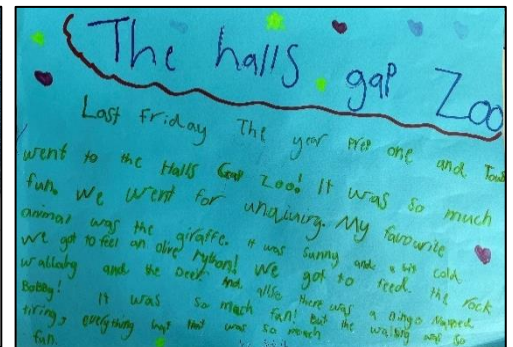 The halls gap Zoo
Last Friday The year prep one and
went to the Halls Gap Zoo! It was so much
fun. We went for My favourite
animal was the giraffe. it was sunny and a bit cold.
We got to feel an olive Python! We got to feed the rock
wallaby and the Deer. And allso there was a Dingo Named
Bobby! It was so much fun! But the walking was so
tiring, everything was that was so much
fun.